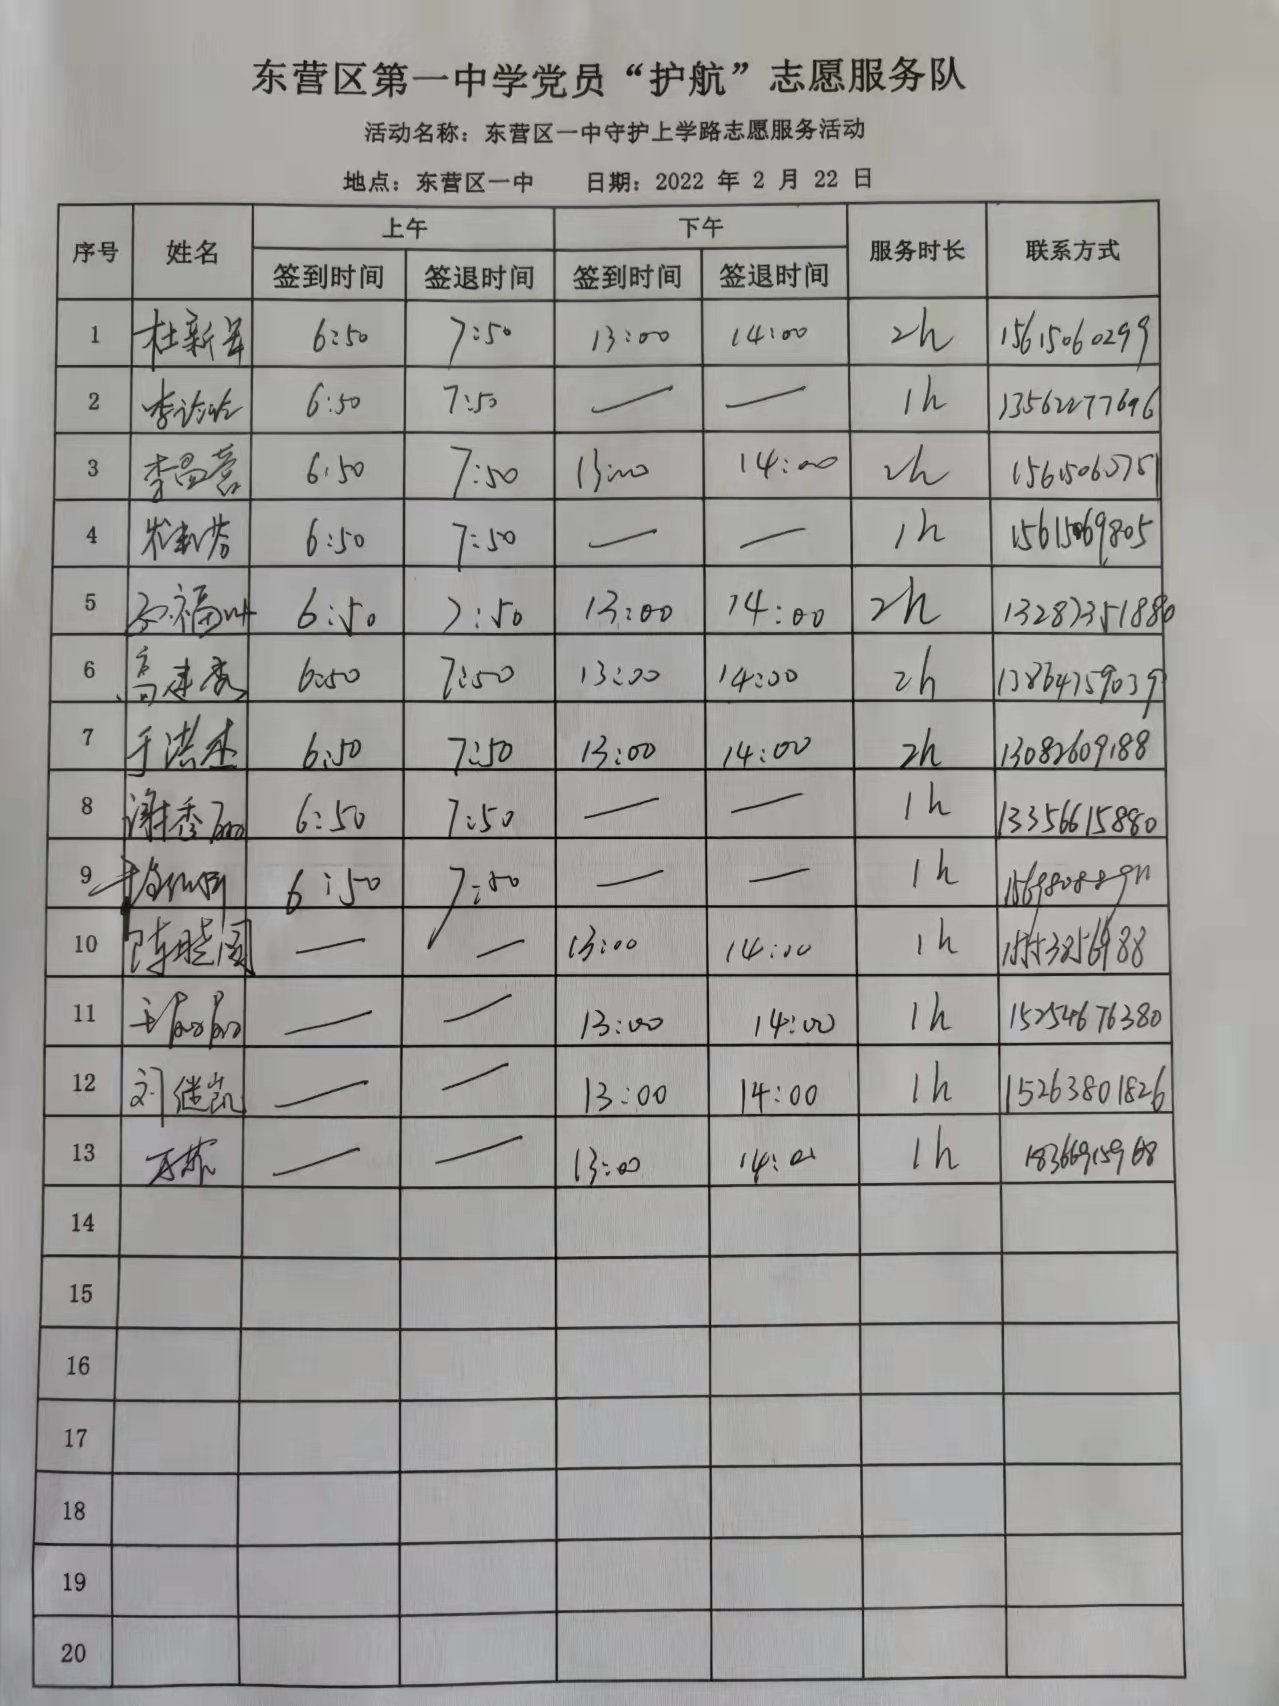 东营区第一中学党员“护航”志愿服务队
活动名称：东营区一中守护上学路志愿服务活动
地点：东营区一中 日期：2022 年 2 月 22 日
序号 姓名 上午 下午 服务时长 联系方式
签到时间 签退时间 签到时间 签退时间
1 杜新军 6:50 7:50 13:00 14:00 2h 15615060299
2 6:50 7:50 — — 1h 13562277696
3 李昌营 6:50 7:50 13:00 14:00 2h
4 6:50 7:50 — — 1h 15615069805
5 6:50 7:50 13:00 14:00 2h 13287351880
6 高建秀 6:50 7:50 13:00 14:00 2h 13864759039
7 于洪杰 6:50 7:50 13:00 14:00 2h 13082609188
8 谢秀丽 6:50 7:50 — — 1h 13356615880
9 6:50 7:50 — — 1h
10 陈晓阁 — — 13:00 14:00 1h 15553856988
11 王丽丽 — — 13:00 14:00 1h 15254676380
12 刘继凯 — — 13:00 14:00 1h 15263801826
13 — — 13:00 14:00 1h 18366915968
14
15
16
17
18
19
20